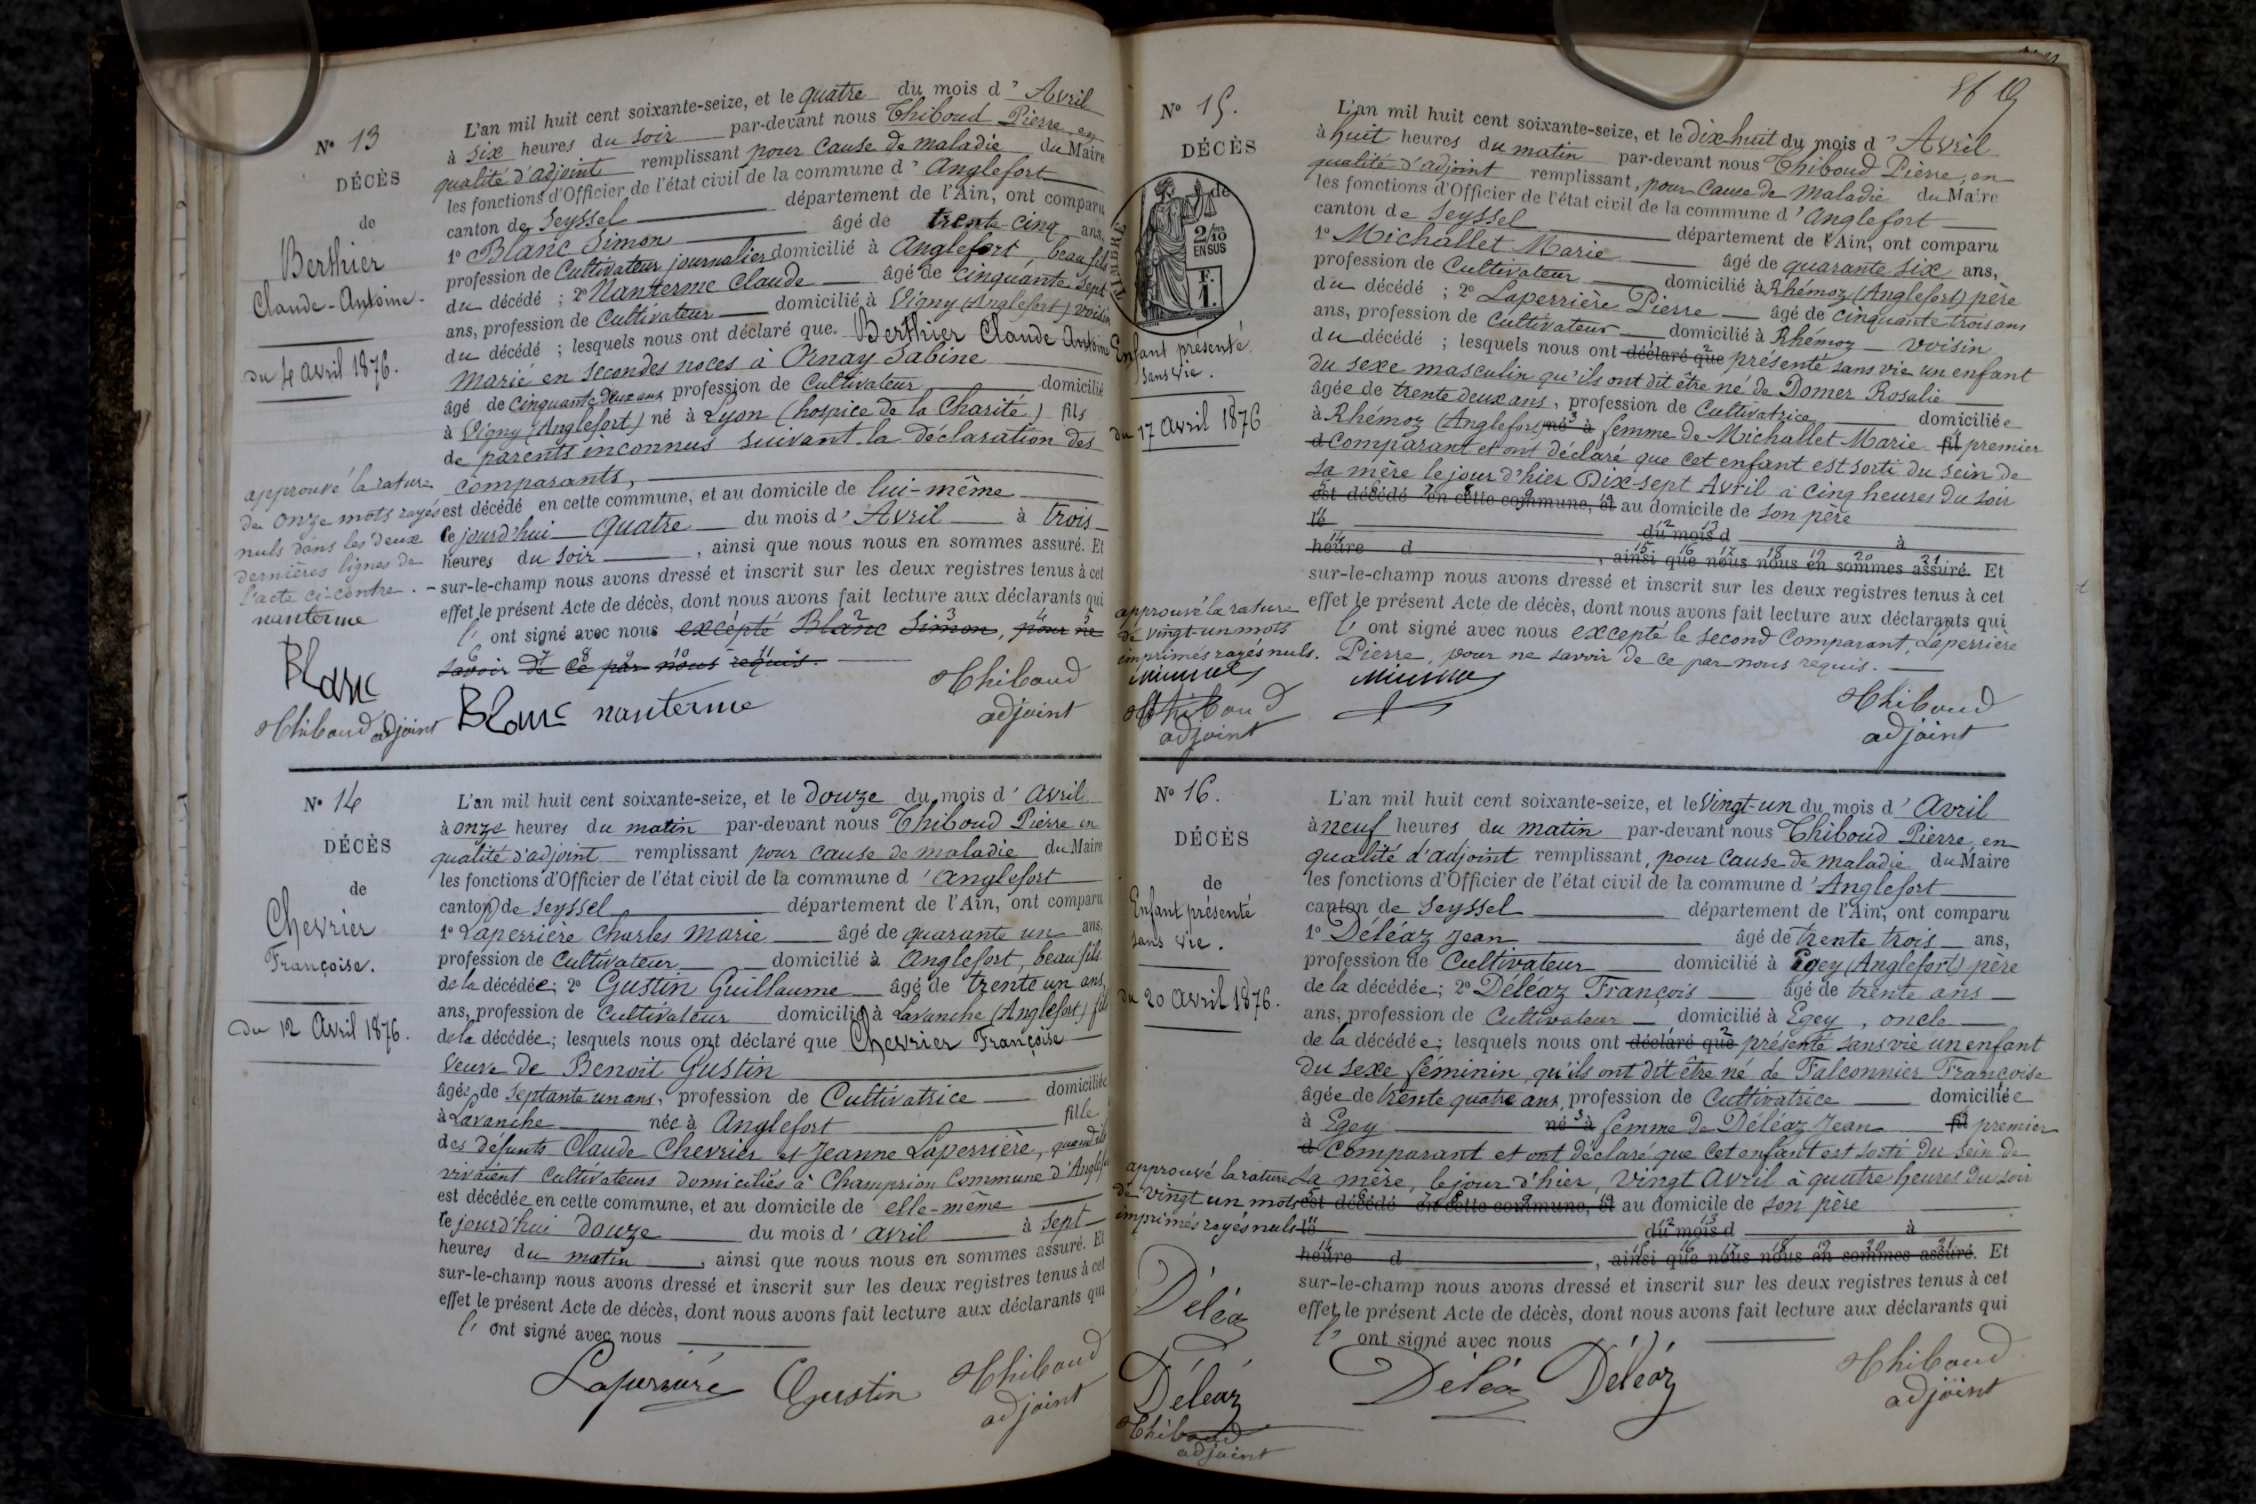 N° 13
DÉCÈS
de
Berthier
Claude-Antoine.
du 4 avril 1876.
L'an mil huit cent soixante-seize, et le quatre du mois d' Avril
à six heures du soir par-devant nous Thiboud Pierre, en
qualité d'adjoint remplissant pour cause de maladie du Maire
les fonctions d'Officier de l'état civil de la commune d' Anglefort
canton de Seyssel département de l'Ain, ont comparu
1° Blanc Simon âgé de trente-cinq ans,
profession de Cultivateur journalier domicilié à Anglefort, beau fils
du décédé ; 2° Nanterme Claude âgé de cinquante sept
ans, profession de Cultivateur domicilié à Vigny (Anglefort) voisin
du décédé ; lesquels nous ont déclaré que Berthier Claude Antoine
marié en secondes noces à Ornay Sabine
âgé de cinquante deux ans profession de Cultivateur domicilié
à Vigny (Anglefort) né à Lyon (hospice de la Charité) fils
de parents inconnus suivant la déclaration des
comparants,
est décédé en cette commune, et au domicile de lui-même
le jourd'hui quatre du mois d' Avril à trois
heures du soir, ainsi que nous nous en sommes assuré. Et
sur-le-champ nous avons dressé et inscrit sur les deux registres tenus à cet
effet le présent Acte de décès, dont nous avons fait lecture aux déclarants qui
l' ont signé avec nous excepté Blanc Simon, pour ne
savoir de ce par nous requis.
approuvé la rature
de onze mots rayés
nuls dans les deux
dernières lignes de
l'acte ci-contre.
nanterme
Blanc
Thiboud adjoint
Blanc nanterme
Thiboud
adjoint
N° 14
DÉCÈS
de
Chevrier
Françoise.
du 12 Avril 1876.
L'an mil huit cent soixante-seize, et le douze du mois d' avril
à onze heures du matin par-devant nous Thiboud Pierre en
qualité d'adjoint remplissant pour cause de maladie du Maire
les fonctions d'Officier de l'état civil de la commune d' Anglefort
canton de Seyssel département de l'Ain, ont comparu
1° Laperrière Charles Marie âgé de quarante un ans,
profession de Cultivateur domicilié à Anglefort, beau fils
de la décédée; 2° Gustin Guillaume âgé de trente un ans
ans, profession de Cultivateur domicilié à Lavanche (Anglefort) fils
de la décédée; lesquels nous ont déclaré que Chevrier Françoise
veuve de Benoit Gustin
âgée de septante un ans, profession de Cultivatrice domiciliée
à Lavanche née à Anglefort fille
des défunts Claude Chevrier et Jeanne Laperrière, quand ils
vivaient cultivateurs domiciliés à Champrion Commune d'Anglefort
est décédée en cette commune, et au domicile de elle-même
le jourd'hui douze du mois d' avril à sept
heures du matin, ainsi que nous nous en sommes assuré. Et
sur-le-champ nous avons dressé et inscrit sur les deux registres tenus à cet
effet le présent Acte de décès, dont nous avons fait lecture aux déclarants qui
l' ont signé avec nous
Laperrière Gustin Thiboud
adjoint
N° 15.
DÉCÈS
de
TIMBRE
2/10 EN SUS
F. 1.
Enfant présenté
sans vie.
du 17 Avril 1876
L'an mil huit cent soixante-seize, et le Dix-huit du mois d' Avril
à huit heures du matin par-devant nous Thiboud Pierre, en
qualité d'adjoint remplissant, pour cause de maladie du Maire
les fonctions d'Officier de l'état civil de la commune d' Anglefort
canton de Seyssel département de l'Ain, ont comparu
1° Michallet Marie âgé de quarante six ans,
profession de Cultivateur domicilié à Rhémoz (Anglefort) père
du décédé ; 2° Laperrière Pierre âgé de cinquante trois ans
ans, profession de Cultivateur domicilié à Rhémoz voisin
du décédé ; lesquels nous ont déclaré que présenté sans vie un enfant
du sexe masculin qu'ils ont dit être né de Domer Rosalie
âgée de trente deux ans, profession de Cultivatrice domiciliée
à Rhémoz (Anglefort) né à femme de Michallet Marie fil premier
d Comparant et ont déclaré que cet enfant est sorti du sein de
sa mère le jour d'hier Dix-sept Avril à cinq heures du soir
est décédé en cette commune, et au domicile de son père
le du mois d à
heure d, ainsi que nous nous en sommes assuré. Et
sur-le-champ nous avons dressé et inscrit sur les deux registres tenus à cet
effet le présent Acte de décès, dont nous avons fait lecture aux déclarants qui
l' ont signé avec nous excepté le second Comparant, Laperrière
Pierre, pour ne savoir de ce par nous requis.
approuvé la rature
de vingt-un mots
imprimés rayés nuls.
Thiboud
adjoint
Thiboud
adjoint
N° 16.
DÉCÈS
de
Enfant présenté
sans vie.
du 20 Avril 1876.
L'an mil huit cent soixante-seize, et le Vingt-un du mois d' Avril
à neuf heures du matin par-devant nous Thiboud Pierre, en
qualité d'adjoint remplissant, pour cause de maladie du Maire
les fonctions d'Officier de l'état civil de la commune d' Anglefort
canton de Seyssel département de l'Ain, ont comparu
1° Déléaz Jean âgé de trente trois ans,
profession de Cultivateur domicilié à Egey (Anglefort) père
de la décédée; 2° Déléaz François âgé de trente ans
ans, profession de Cultivateur domicilié à Egey, oncle
de la décédée; lesquels nous ont déclaré que présenté sans vie un enfant
du sexe féminin, qu'ils ont dit être né de Falconnier Françoise
âgée de trente quatre ans, profession de Cultivatrice domiciliée
à Egey né à femme de Déléaz Jean fil premier
d Comparant et ont déclaré que cet enfant est sorti du sein de
sa mère, le jour d'hier, vingt Avril à quatre heures du soir
est décédé en cette commune, et au domicile de son père
le du mois d à
heure d, ainsi que nous nous en sommes assuré. Et
sur-le-champ nous avons dressé et inscrit sur les deux registres tenus à cet
effet le présent Acte de décès, dont nous avons fait lecture aux déclarants qui
l' ont signé avec nous
approuvé la rature
de vingt un mots
imprimés rayés nuls
Déléaz
Déléaz
Thiboud
adjoint
Déléaz Déléaz
Thiboud
adjoint